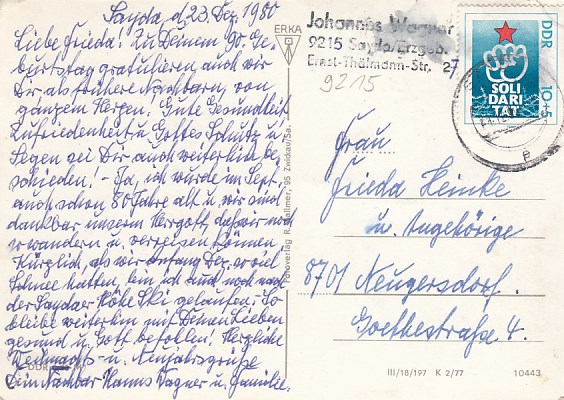 Sayda, d. 23. Dez. 1980
Liebe Frieda! Zu Deinem 90. Ge-
burtstag gratulieren auch wir
Dir als frühere Nachbarn, von
ganzem Herzen. Gute Gesundheit
Zufriedenheit u. Gottes Schutz u.
Segen sei Dir auch weiterhin be-
schieden! - Ja, ich wurde im Sept.
auch schon 80 Jahre alt u. wir sind
dankbar unserm Herrgott, daß wir noch
so wandern u. verreisen können.
Kürzlich, als wir Anfang Dez. so viel
Schnee hatten, bin ich auch noch nach
der Saydaer Höhe Ski gelaufen. So
bleibe weiterhin mit Deinen Lieben
gesund u. Gott befohlen! Herzliche
Weihnachts- u. Neujahrsgrüße
Dein Nachbar Hanns Wagner u. Familie.
DDR
ERKA
Fotoverlag R. Kallmer, 95 Zwickau/Sa.
Johannes Wagner
9215 Sayda/Erzgeb.
Ernst-Thälmann-Str. 27
9215
DDR
10+5
SOLI
DARI
TÄT
Frau
Frieda Heinke
u. Angehörige
8701 Neugersdorf.
Goethestraße 4.
III/18/197 K 2/77 10443